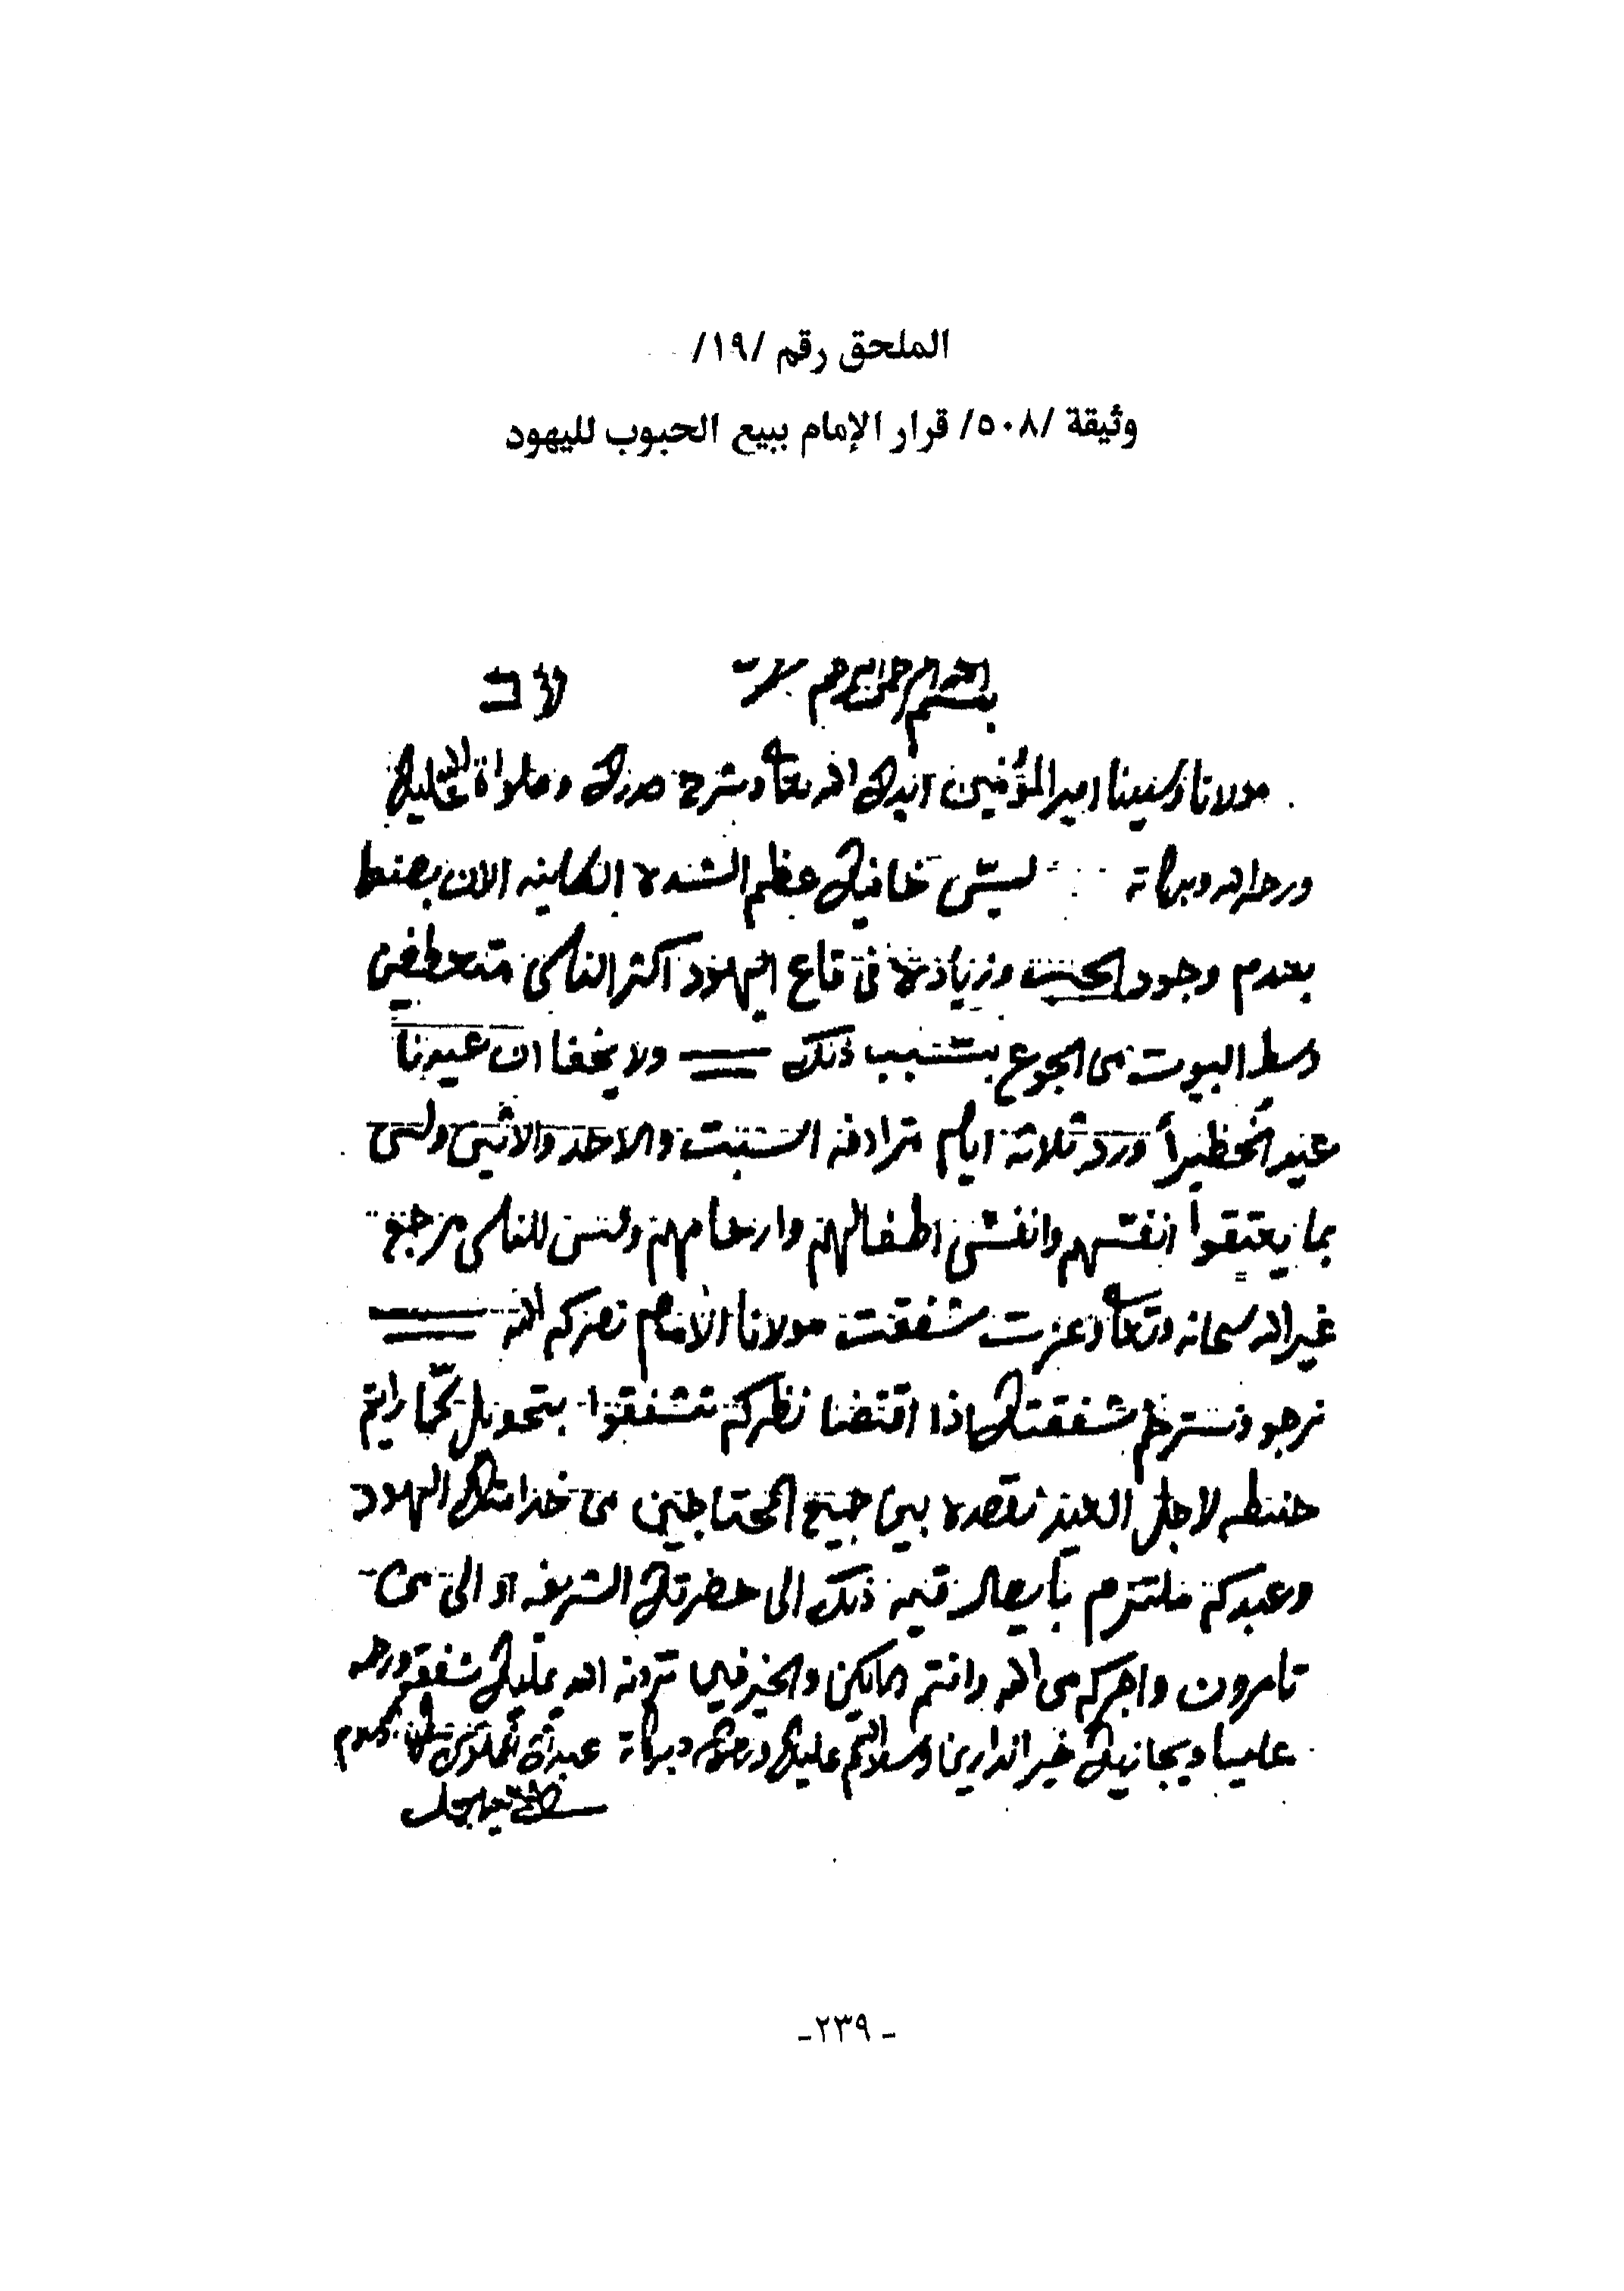 الملحق رقم /١٩/
وثيقة /٥٠٨/ قرار الإمام ببيع الحبوب لليهود
بسم الله الرحمن الرحيم
مولانا وسيدنا امير المؤمنين ايدك الله تعالى وشرح صدرك وصلواة الله عليك
ورحمة الله وبركاته ليس خافيك عظم الشده الكاينه الان
بعدم وجود الحب وزيادة في قاع اليهود اكثر الناس
وسط البيوت من الجوع بتسبب ذلك ولا يخفا ان عيدنا
عيد ورد ثلاثة ايام مترادفه السبت والاحد والاثنين وليس
بما انفسهم وانفس اطفالهم وارحامهم وليس للناس مرجع
غير الله سبحانه وتعالى وعزت شفقت مولانا الامام نصركم الله
نرجو ونسترحم شفقتك اذا اقتضا نظركم تشفقوا بتحويل رايتم
حنطه لاجل العيد بين جميع المحتاجين من خدامتك اليهود
وعبدكم ملتزم بأيصال قيمه ذلك الى حضرتك الشريفه او الى من
تامرون واجركم من الله وانتم والخير الله شفقه ورحمه
علينا ويجازيك خير الدارين وسلام عليك ورحمة الله وبركاته